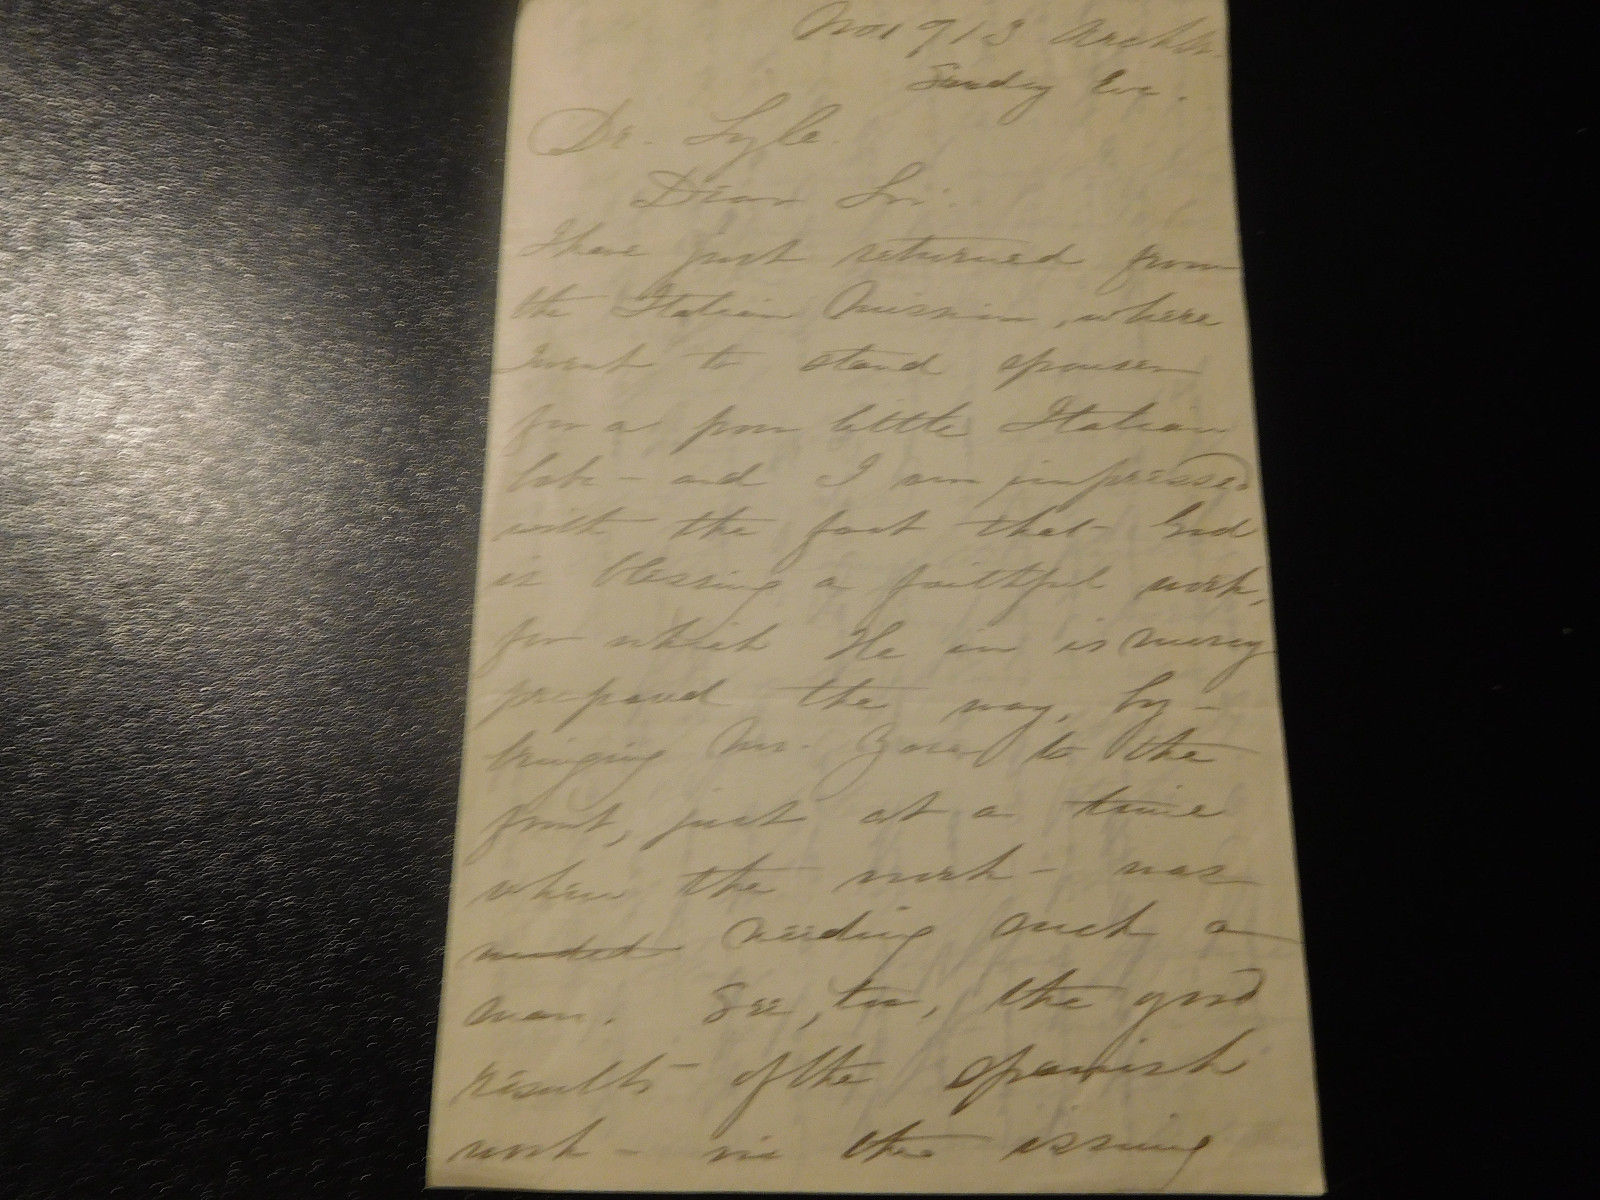 No 1913 Arch St.
Sunday Eve.
Dr. Lyle.
Dear Sir.
I have just returned from
the Italian Mission, where
I went to stand sponser
for a poor little Italian
babe - and I am impressed
with the fact that God
is blessing a faithful work,
for which He in is mercy
prepared the way, by -
bringing Mr. to the
front, just at a time
when the work - was
needed needing such a
man. See, too, the good
results of the Spanish
work - in the issuing